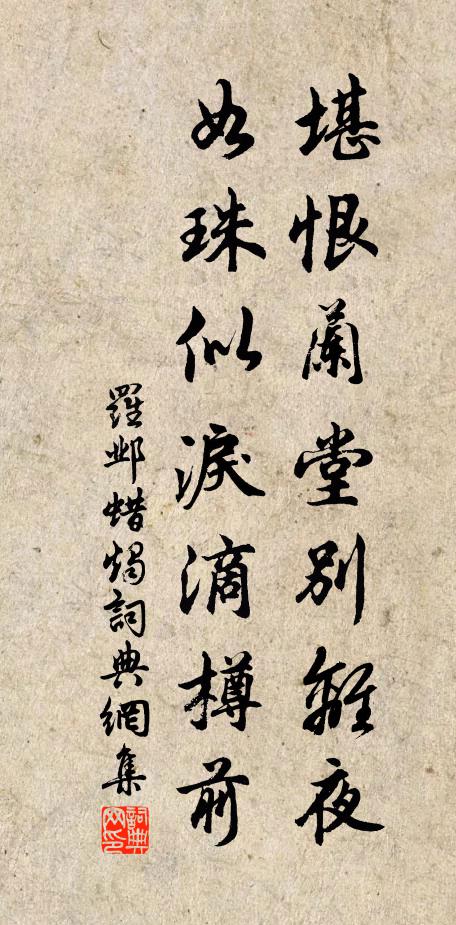 堪恨蘭堂別離夜
如珠似淚滴樽前
羅鄴蜡燭詞典網集
詞典网印